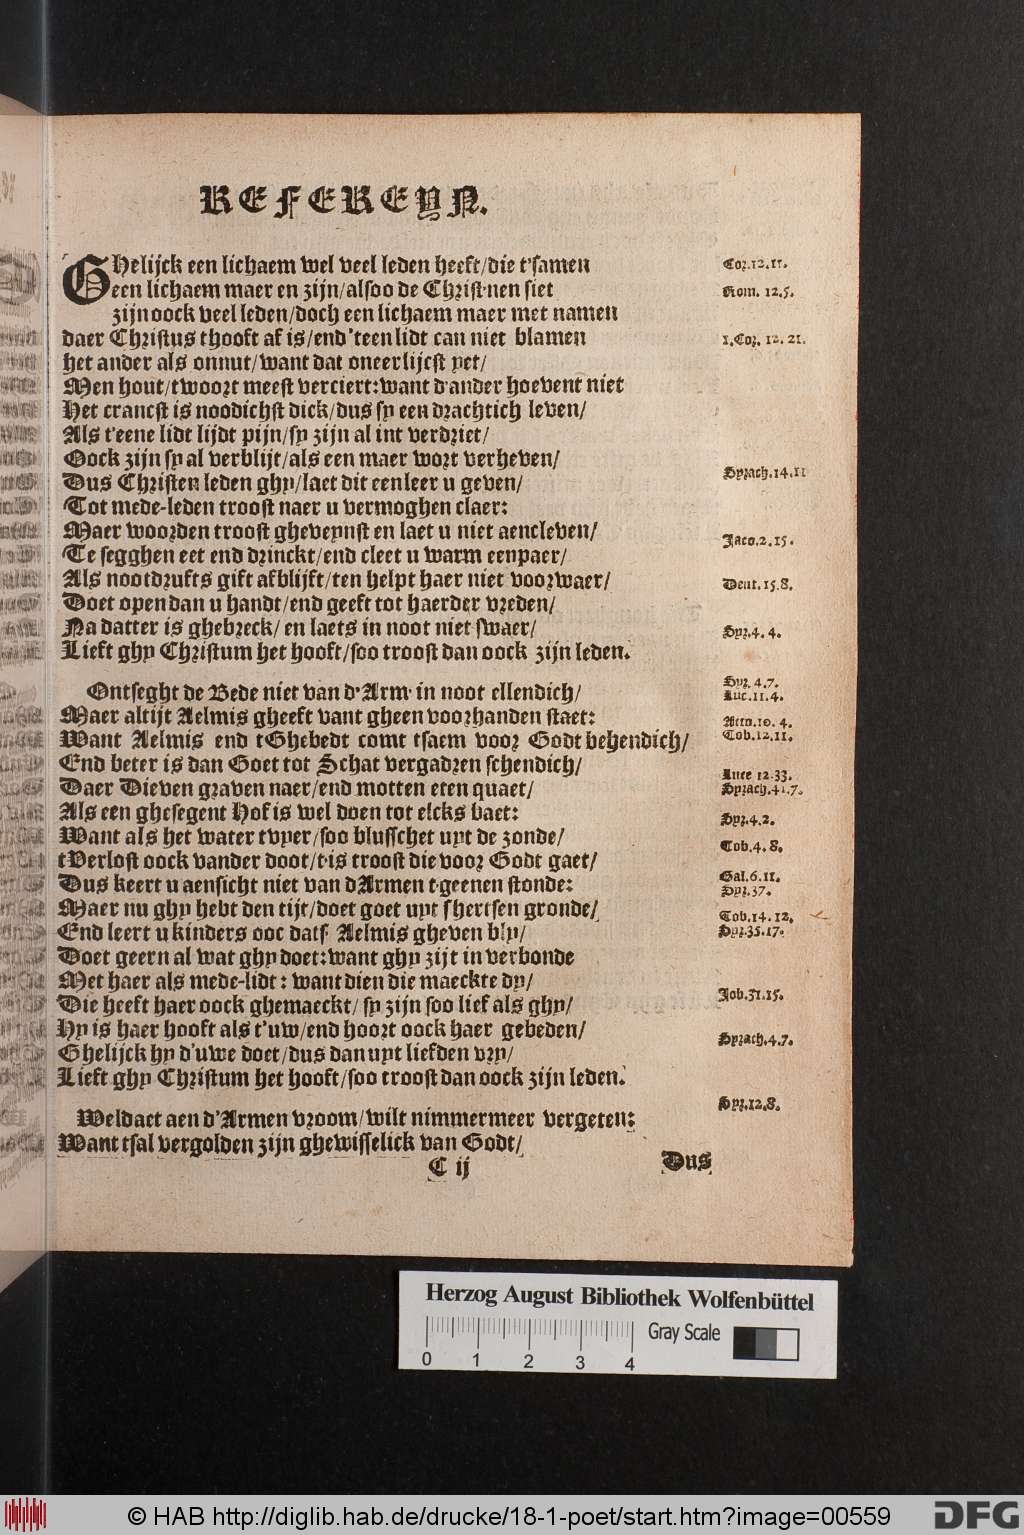 REFEREYN.
GHelijck een lichaem wel veel leden heeft/die t'samen
een lichaem maer en zijn/alsoo de Christnen siet
zijn oock veel leden/doch een lichaem maer met namen
daer Christus thooft af is/end 'teen lidt can niet blamen
het ander als onnut/want dat oneerlijcst yet/
Men hout/twoort meest verciert:want d'ander hoevent niet
Het crancst is noodichst dick/dus sy een drachtich leven/
Als t'eene lidt lijdt pijn/sy zijn al int verdriet/
Oock zijn sy al verblijt/als een maer wort verheven/
Dus Christen leden ghy/laet dit een leer u geven/
Tot mede-leden troost naer u vermoghen claer:
Maer woorden troost gheveynst en laet u niet aencleven/
Te segghen eet end drinckt/end cleet u warm eenpaer/
Als nootdrufts gift afblijft/ten helpt haer niet voorwaer/
Doet open dan u handt/end geeft tot haerder vreden/
Na datter is ghebreck/ en laets in noot niet swaer/
Lieft ghy Christum het hooft/soo troost dan oock zijn leden.
Ontseght de Bede niet van d'Arm' in noot ellendich/
Maer altijt Aelmis gheeft vant gheen voorhanden staet:
Want Aelmis end tGhebedt comt tsaem voor Godt behendich/
End beter is dan Goet tot Schat vergadren schendich/
Daer Dieven graven naer/end motten eten quaet/
Als een ghesegent Hof is wel doen tot elcks baet:
Want als het water tvyer/soo blusschet uyt de zonde/
tVerlost oock vander doot/t'is troost die voor Godt gaet/
Dus keert u aensicht niet van dArmen t'geenen stonde:
Maer nu ghy hebt den tijt/doet goet uyt s'hertsen gronde/
End leert u kinders ooc dats Aelmis gheven bly/
Doet geern al wat ghy doet:want ghy zijt in verbonde
Met haer als mede-lidt: want dien die maeckte dy/
Die heeft haer oock ghemaeckt/ sy zijn soo lief als ghy/
Hy is haer hooft als t'uw/end hoort oock haer gebeden/
Ghelijck hy d'uwe doet/dus dan uyt liefden vry/
Lieft ghy Christum het hooft/soo troost dan oock zijn leden.
Weldaet aen d'Armen vroom/wilt nimmermeer vergeten:
Want tsal vergolden zijn ghewisselick van Godt/
C ij
Dus
Cor.12.11.
Rom. 12.5.
1.Cor. 12. 21.
Syrach.14.11
Jaco.2.15.
Deut. 15.8.
Syr.4. 4.
Syr. 4.7.
Luc.11.4.
10. 4.
Tob.12.11.
Luce 12.33.
Syrach.41.7.
Syr.4.2.
Tob.4.8.
Gal.6.11.
Syr.37.
Tob.14.12.
Syr.35.17.
Job.31.15.
Syrach.4.7.
Syr.12.8.
Herzog August Bibliothek Wolfenbüttel
Gray Scale
0 1 2 3 4
© HAB http://diglib.hab.de/drucke/18-1-poet/start.htm?image=00559
DFG